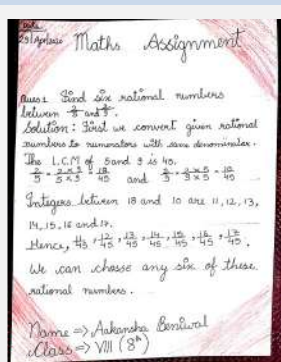 Date
29 April 2020
Maths Assignment
Ques 1 Find six rational numbers
between 2/5 and 2/9.
Solution: First we convert given rational
numbers to numerators with same denominator.
The L.C.M of 5 and 9 is 45.
2/5 = 2×9/5×9 = 18/45 and 2/9 = 2×5/9×5 = 10/45
Integers between 18 and 10 are 11, 12, 13,
14, 15, 16 and 17.
Hence, 11/45, 12/45, 13/45, 14/45, 15/45, 16/45, 17/45.
We can choose any six of these
rational numbers.
Name => Aakansha Beniwal
Class => VIII (8th)